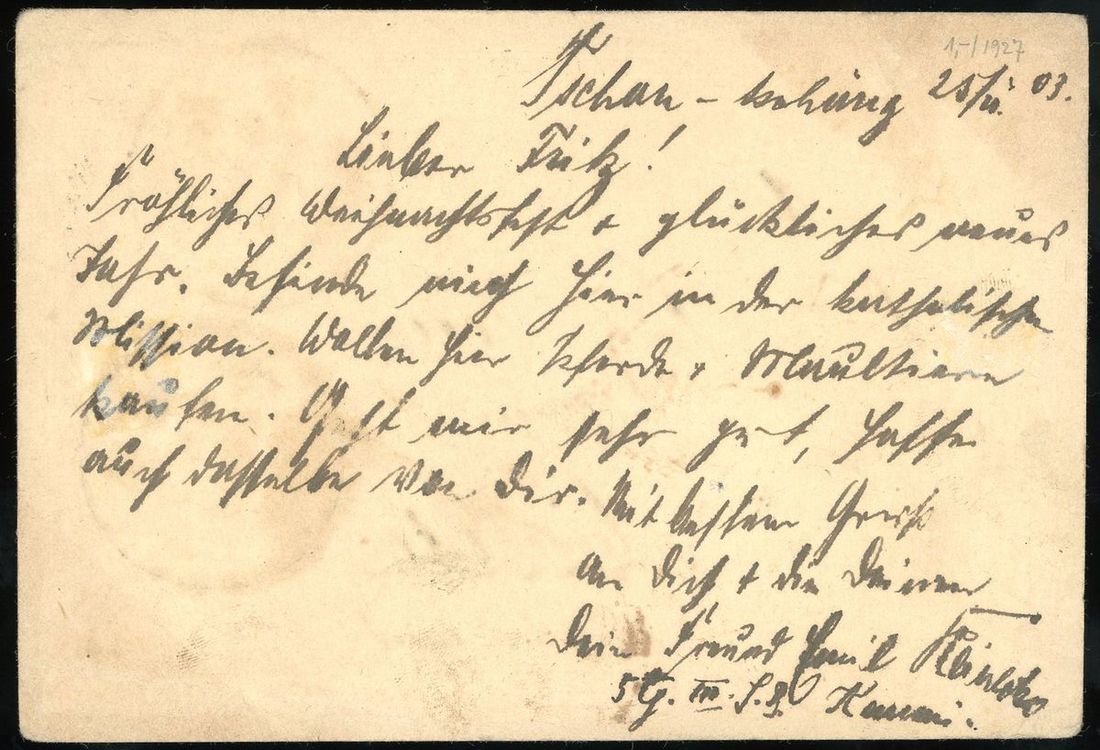 1,-/1927
Tschou-tschüng 25/10. 03.
Lieber Fritz!
Fröhliches Weihnachtsfest + glückliches neues
Jahr. Befinde mich hier in der katholischen
Mission. Wollen hier Pferde + Maultiere
kaufen. Geht mir sehr gut, hoffe
auch dasselbe von Dir. Mit bestem Gruß
an Dich + die Deinen
Dein Freund Emil
5 III.